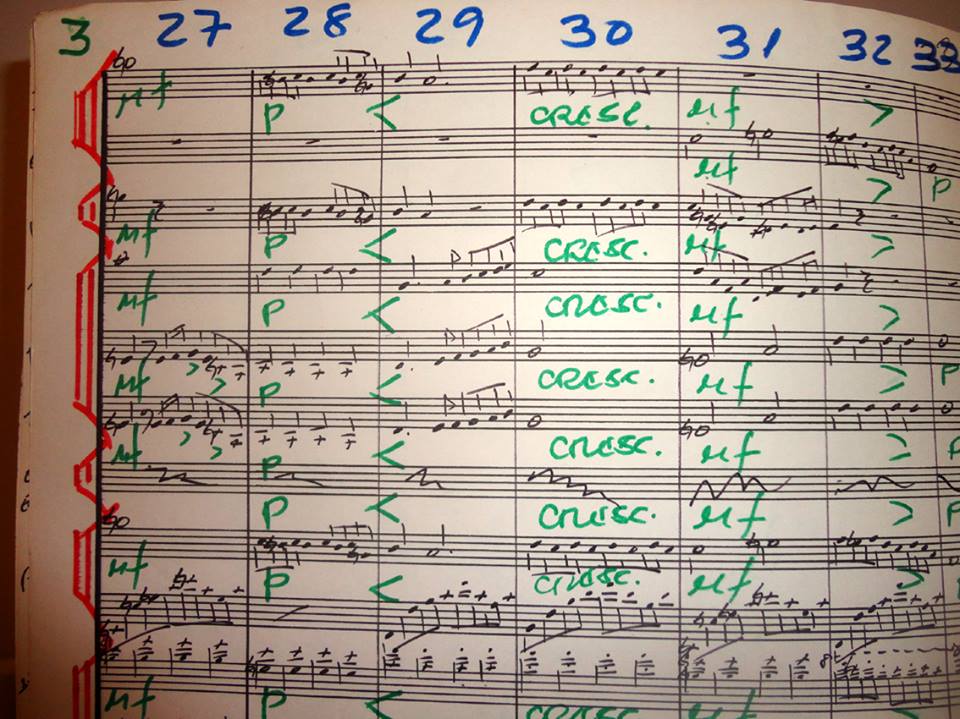 3 27 28 29 30 31 32 33
mf p < CRESC. mf >
mf > p
mf p < CRESC. mf >
mf p < CRESC. mf >
mf > > p < CRESC. mf > p
mf > > p < CRESC. mf > p
p < CRESC. mf > p
mf p < CRESC. mf >
8
mf p < CRESC mf